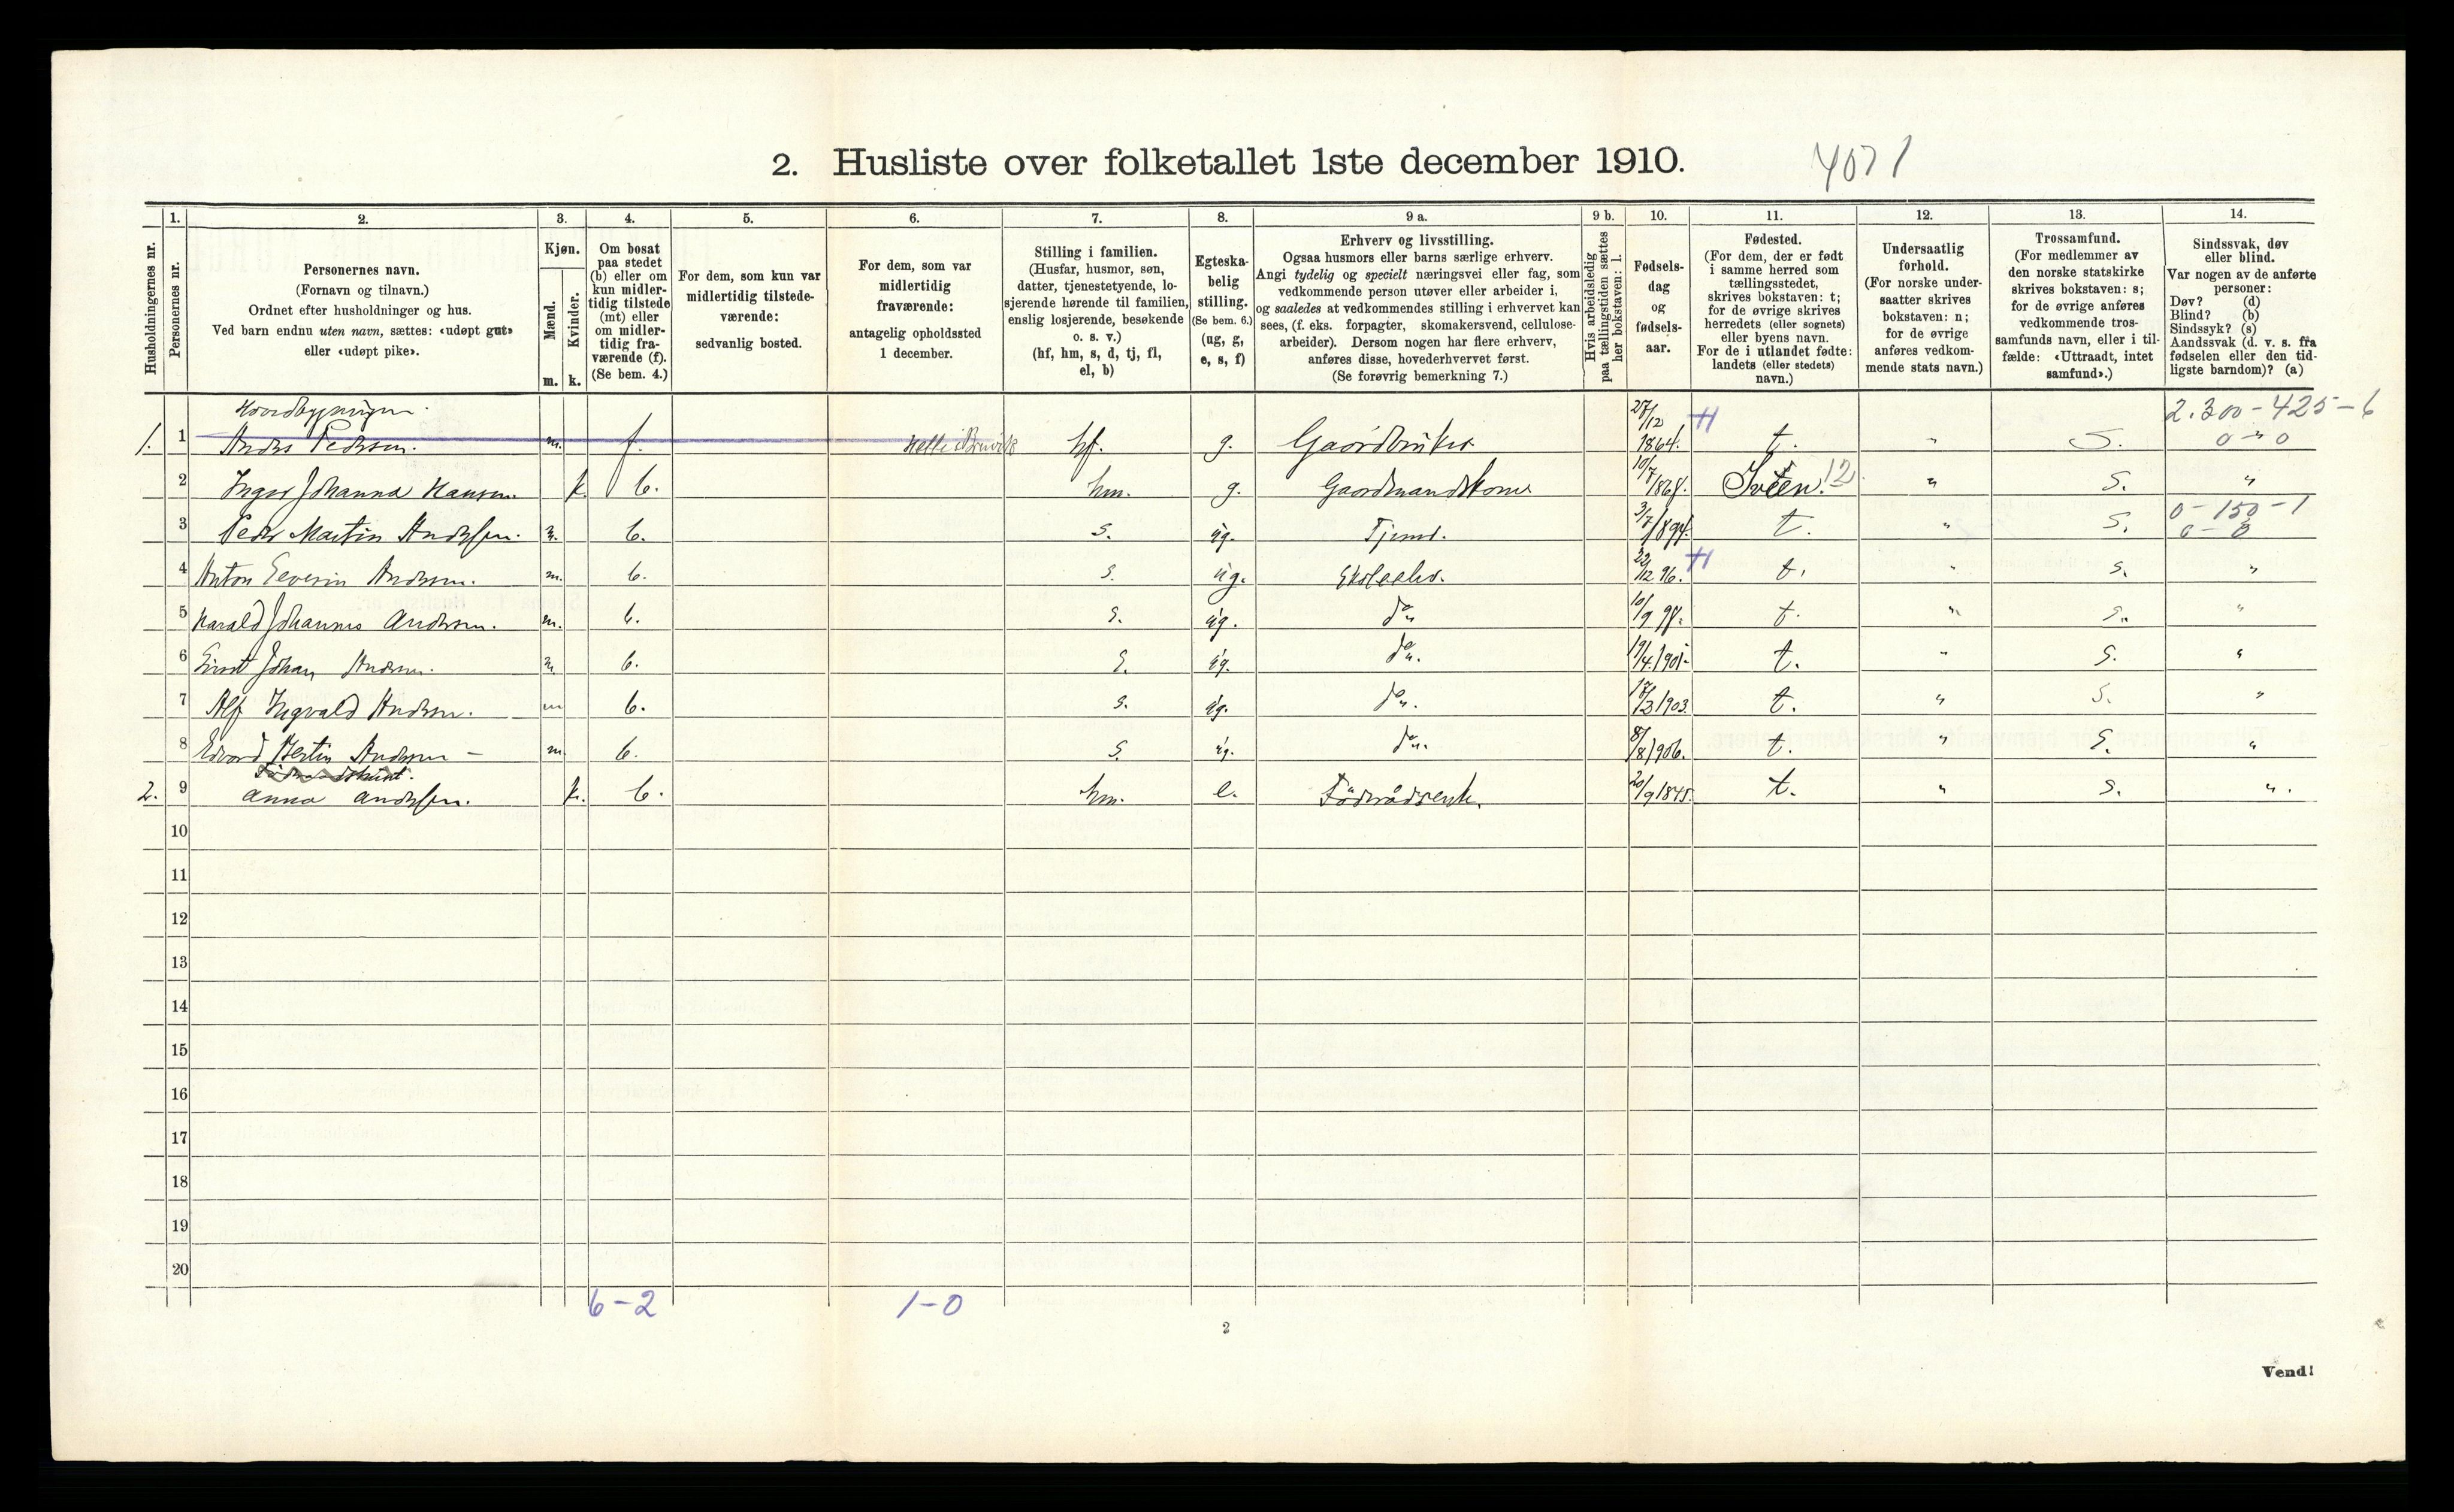 2. Husliste over folketallet 1ste december 1910.
4071
1. 2. 3. 4. 5. 6. 7. 8. 9 a. 9 b. 10. 11. 12. 13. 14.
Husholdningernes nr.
Personernes nr.
Personernes navn.
(Fornavn og tilnavn.)
Ordnet efter husholdninger og hus.
Ved barn endnu uten navn, sættes: «udøpt gut»
eller «udøpt pike».
Kjøn.
Mænd.
Kvinder.
m. k.
Om bosat
paa stedet
(b) eller om
kun midler-
tidig tilstede
(mt) eller
om midler-
tidig fra-
værende (f).
(Se bem. 4.)
For dem, som kun var
midlertidig tilstede-
værende:
sedvanlig bosted.
For dem, som var
midlertidig
fraværende:
antagelig opholdssted
1 december.
Stilling i familien.
(Husfar, husmor, søn,
datter, tjenestetyende, lo-
sjerende hørende til familien,
enslig losjerende, besøkende
o. s. v.)
(hf, hm, s, d, tj, fl,
el, b)
Egteska-
belig
stilling.
(Se bem. 6.)
(ug, g,
e, s, f)
Erhverv og livsstilling.
Ogsaa husmors eller barns særlige erhverv.
Angi tydelig og specielt næringsvei eller fag, som
vedkommende person utøver eller arbeider i,
og saaledes at vedkommendes stilling i erhvervet kan
sees, (f. eks. forpagter, skomakersvend, cellulose-
arbeider). Dersom nogen har flere erhverv,
anføres disse, hovederhvervet først.
(Se forøvrig bemerkning 7.)
Hvis arbeidsledig
paa tællingstiden sættes
her bokstaven: l.
Fødsels-
dag
og
fødsels-
aar.
Fødested.
(For dem, der er født
i samme herred som
tællingsstedet,
skrives bokstaven: t;
for de øvrige skrives
herredets (eller sognets)
eller byens navn.
For de i utlandet fødte:
landets (eller stedets)
navn.)
Undersaatlig
forhold.
(For norske under-
saatter skrives
bokstaven: n;
for de øvrige
anføres vedkom-
mende stats navn.)
Trossamfund.
(For medlemmer av
den norske statskirke
skrives bokstaven: s;
for de øvrige anføres
vedkommende tros-
samfunds navn, eller i til-
fælde: «Uttraadt, intet
samfund».)
Sindssvak, døv
eller blind.
Var nogen av de anførte
personer:
Døv? (d)
Blind? (b)
Sindssyk? (s)
Aandssvak (d. v. s. fra
fødselen eller den tid-
ligste barndom)? (a)
2.300-425-6
1. 1 Anders Pedersen. m. f. hf. g. Gaardbruker 27/12 1864. t. " S. 0 - 0
2 Inger Johanna Hansen. k. b. hm. g. Gaardmandskone 10/7 1868. " S. "
0-150-1
3 Peder Martin Anderssen. m. b. s. ug. Tjener. 3/7 1894. t. " S. 0-0
4 Anton Severin Andersen. m. b. S. ug. Skoleelev. 22/12 96. t. " S. "
5 Harald Johannes Andersen. m. b. S. ug. do 10/9 98. t. " S. "
6 Johan Andersen. m b. S. ug. do. 19/4 1901 t. " S. "
7 Alf Ingvald Andersen. m b. S. ug. do. 17/3 1903. t. " S. "
8 Edvard Bertin Andersen - m. b. S. ug. do. 8/8 1906. t. " S. "
2. 9 Anna Anderssen. k. b. hm. e. Föderådsenk. 20/9 1845. t. " S. ".
10
11
12
13
14
15
16
17
18
19
20
6-2 1-0
2
Vend!